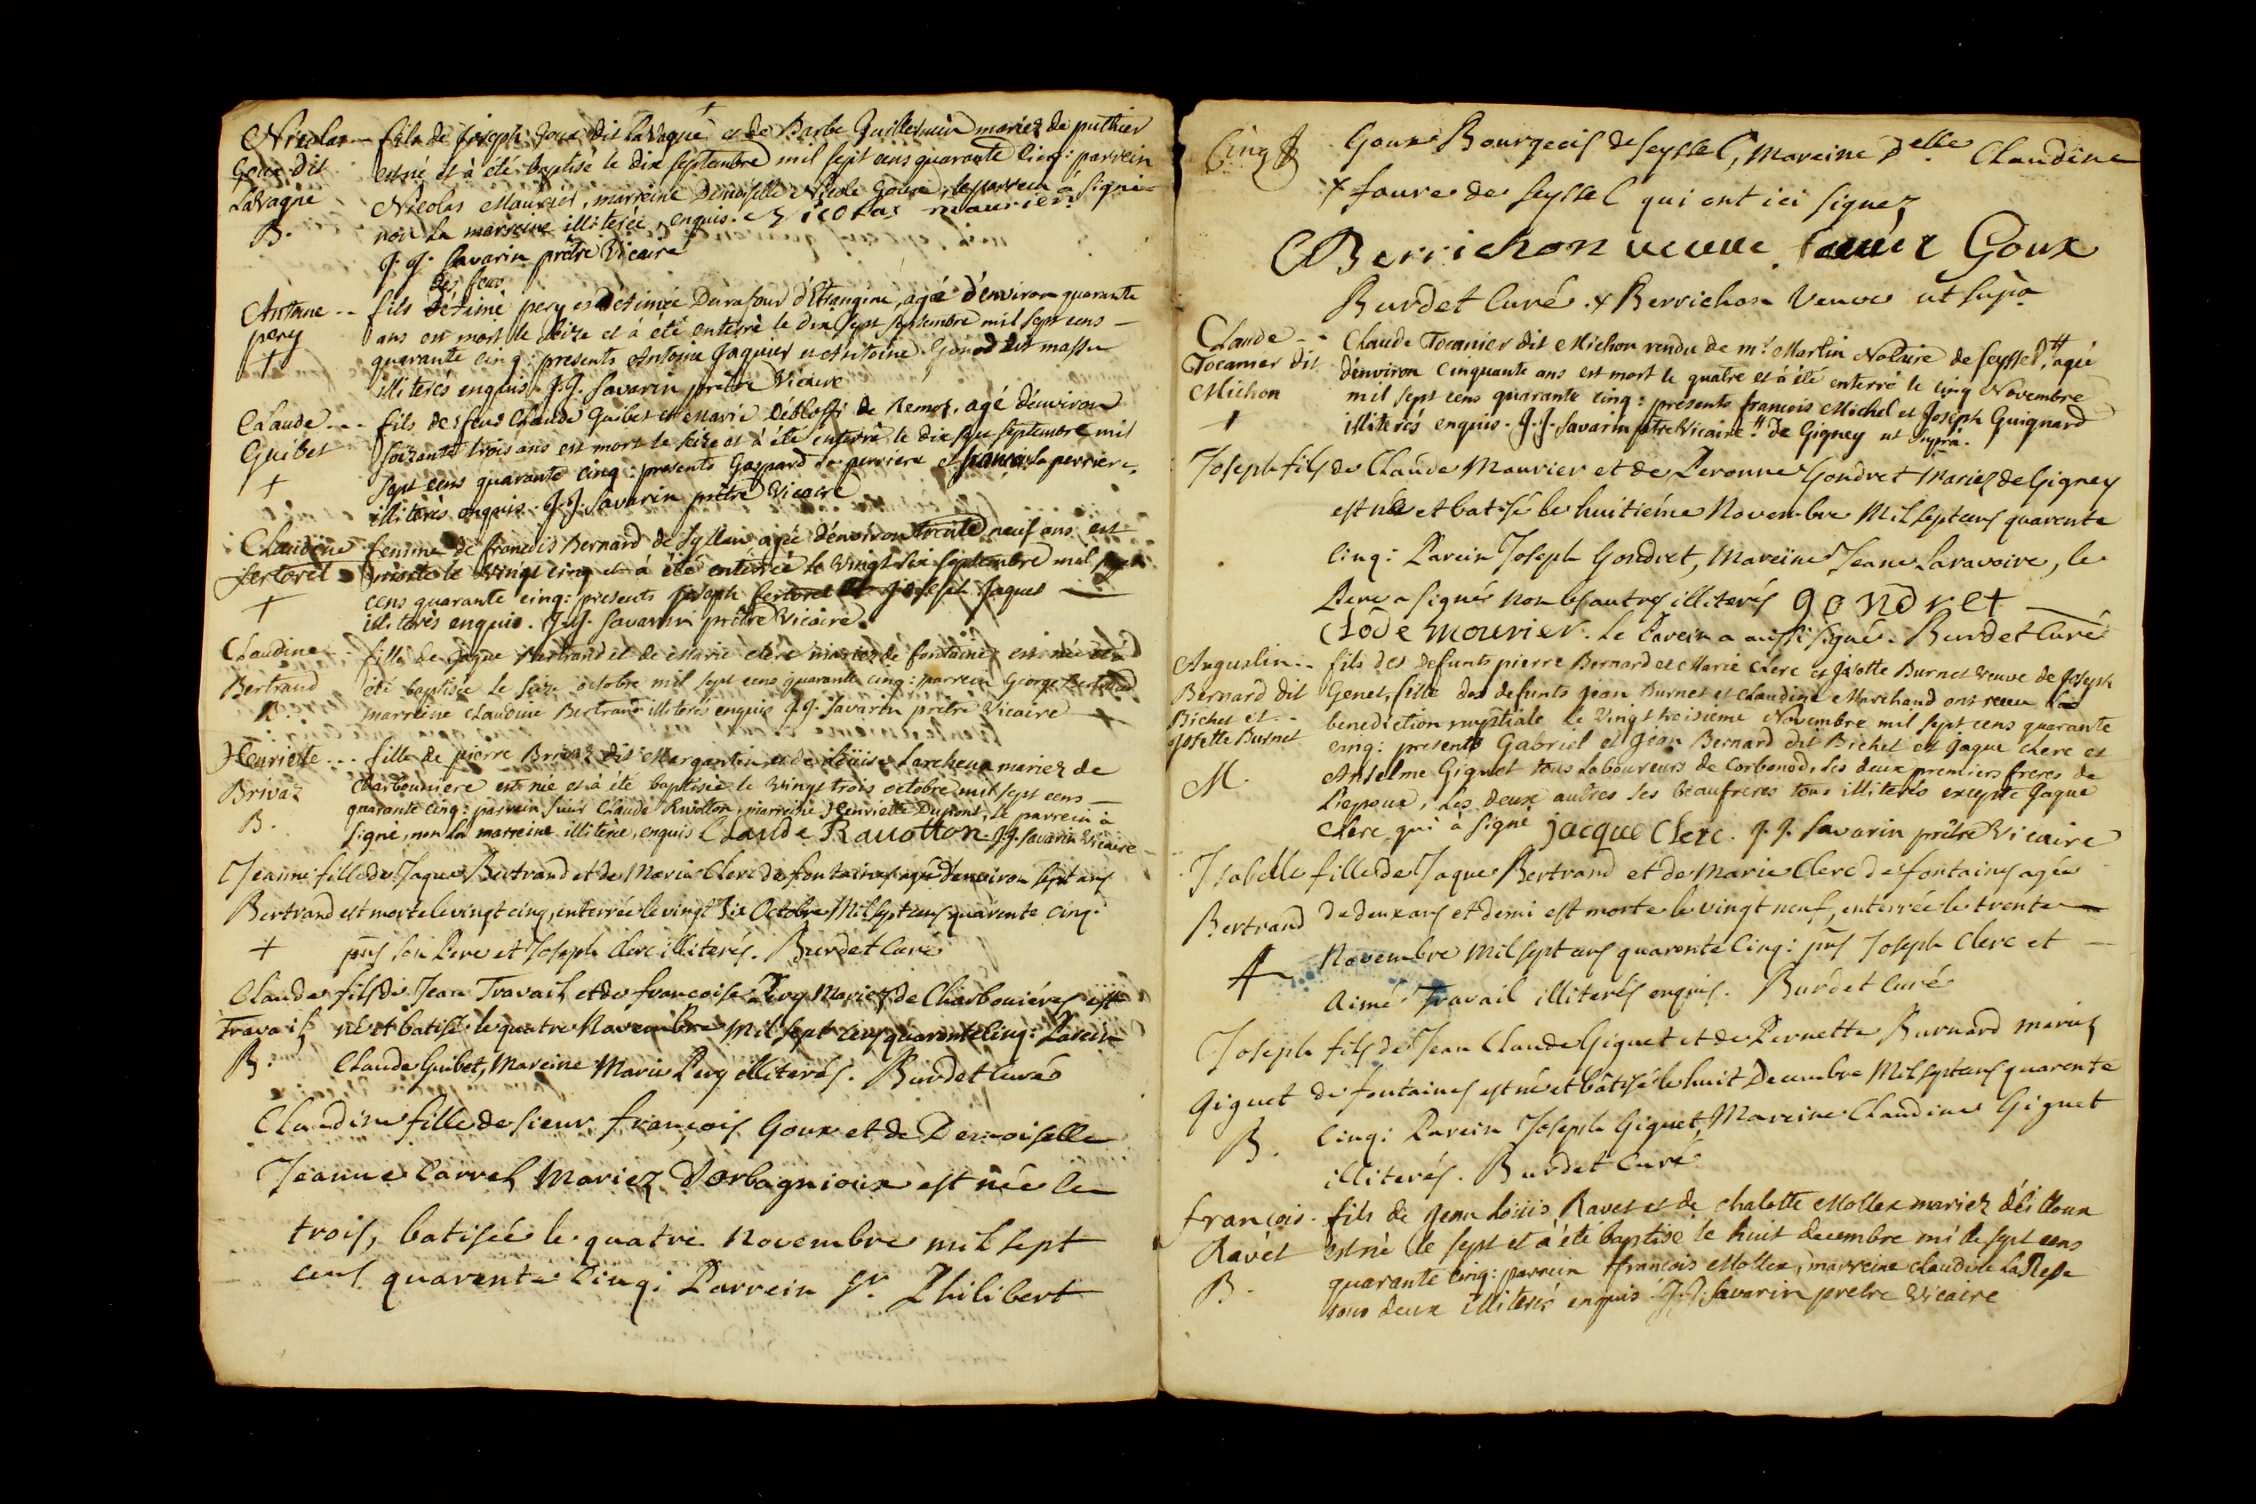 Nicolas -- fils de joseph Goux dit LaVagne et de Barbe Guillermin mariez de puthier
Goux dit est né et à été baptisé le dix septembre mil sept cens quarante cinq: parrein
LaVagne Nicolas Maurier, marreine Demoiselle Nicole Goux, le parrein à signé
B. non la marreine illiterée, enquis. Nicolas maurier
J. J. Savarin prêtre Vicaire
des feus
Antoine -- fils d'Etimé pery et d'Etimée Durafour d'Etrangine, agé d'environ quarante
pery ans est mort le seize et à été enterré le dix sept septembre mil sept cens —
+ quarante cinq: presents Antoine Jaquier et Antoine dit massu
illiterés enquis. J. J. Savarin prêtre Vicaire
Claude -- fils de feus Claude Guibet et Marie de Remoz, agé d'environ
Guibet soixante trois ans est mort le seize et à été enterré le dix sept septembre mil
+ sept cens quarante cinq: presents Gaspard La perriere et françois La perriere,
illiterés enquis. J. J. Savarin prêtre Vicaire
Claudine femme de francois Bernard de Syllan agée d'environ trente neuf ans est
fertoret morte le vingt cinq et à été enterrée le vingt six septembre mil sept
+ cens quarante cinq: presents joseph fertoret et joseph Jaques
illiterés enquis. J. J. Savarin prêtre Vicaire
Claudine fille de Jaque Bertrand et de Marie clerc mariez de fontaines est née et à
Bertrand été baptisée le seize octobre mil sept cens quarante cinq: parrein George Bertrand
B. marreine claudine Bertrand illiterés enquis J. J. Savarin prêtre Vicaire
Henriette -- fille de pierre Brivaz dit Margantin et de loüise Larcheux mariez de
Brivaz Charbonniere est née et à été baptisée le vingt trois octobre mil sept cens
B. quarante cinq: parrein sieur Claude Ravotton, marreine Henriette Dupont, le parrein à
signé, non la marreine illiterée, enquis Claude Rauotton. J. J. Savarin Vicaire
Jeanne fille de Jaque Bertrand et de Marie Clerc de fontaines agée d'environ sept ans
Bertrand est morte le vingt cinq, enterrée le vingt six Octobre Mil sept cens quarente cinq.
+ pnts son Pere et Joseph Clerc illiterés. Burdet Curé
Claude fils de Jean Travail et de francoise Pery Mariez de Charbonnières est
Travail né et batisé le quatre Novembre Mil sept cens quarante cinq: Parein
B. Claude Guibet, Mareine Marie Pery illiterés. Burdet Curé
Claudine fille de sieur françois Goux et de Demoiselle
Jeanne Carrel Mariez Dorbagnioux est née le
trois, batisée le quatre Novembre mil sept
cens quarente cinq: Parrein Sr. Philibert
Cinq Goux Bourgeois de seyssel, Mareine Delle Claudine
+ faure de seyssel qui ont ici signez
CBerrichon veuve faure Goux
Burdet Curé. + Berrichon Veuve ut supà
Claude -- Claude Tocanier dit Michon rendu de mr. Martin Notaire de seyssel,# agé
Tocanier dit d'environ cinquante ans est mort le quatre et à été enterré le cinq Novembre
Michon mil sept cens quarante cinq: presents francois Michel et Joseph Guignard
+ illiterés enquis. J. J. Savarin ptre Vicaire. # de Gigney ut supra.
Joseph fils de Claude Maurier et de Peronne Gondret Mariez de Gigney
est né et batisé le huitiéme Novembre Mil sept cens quarente
cinq: Parein Joseph Gondret, Mareine Jeane Laravoire, le
Pere a signé non les autres illiterés gondret
Clode mourier. le Parein a aussi signé. Burdet Curé
Augustin -- fils des defunts pierre Bernard et Marie clerc et Josette Burnet veuve de Joseph
Bernard dit Genet, fille des defunts jean Burnet et claudine Marchand ont receu la
Bichet et benediction nuptiale le vingt troisieme Novembre mil sept cens quarante
Josette Burnet cinq: presents Gabriel et jean Bernard dit Bichet et jaque clerc et
M. Anselme Giguet tous Laboureurs de Corbonod, les deux premiers freres de
L'epoux, les deux autres ses beaufreres tous illiterés excepté Jaque
clerc qui à signé jacque Clerc. J. J. Savarin prêtre Vicaire
Isabelle fille de Jaque Bertrand et de Marie Clerc de fontaines agée
Bertrand de deux ans et demi est morte le vingt neuf, enterrée le trente
+ Novembre Mil sept cens quarente cinq: pnts Joseph Clerc et
Aimé Travail illiterés enquis. Burdet Curé
Joseph fils de Jean Claude Giguet et de Pernette Burnard mariez
Giguet de fontaines est né et bâtisé le huit Decembre Mil sept cens quarente
B. cinq: Parein Joseph Giguet, Mareine Claudine Giguet
illiterés. Burdet Curé
françois -- fils de jean loüis Ravet et de chalotte Mollex mariez
Ravet est né le sept et à été baptisé le huit decembre mil sept cens
B. quarante cinq: parrein françois Mollex, marreine claudine
tous deux illiterés enquis J. J. Savarin pretre Vicaire